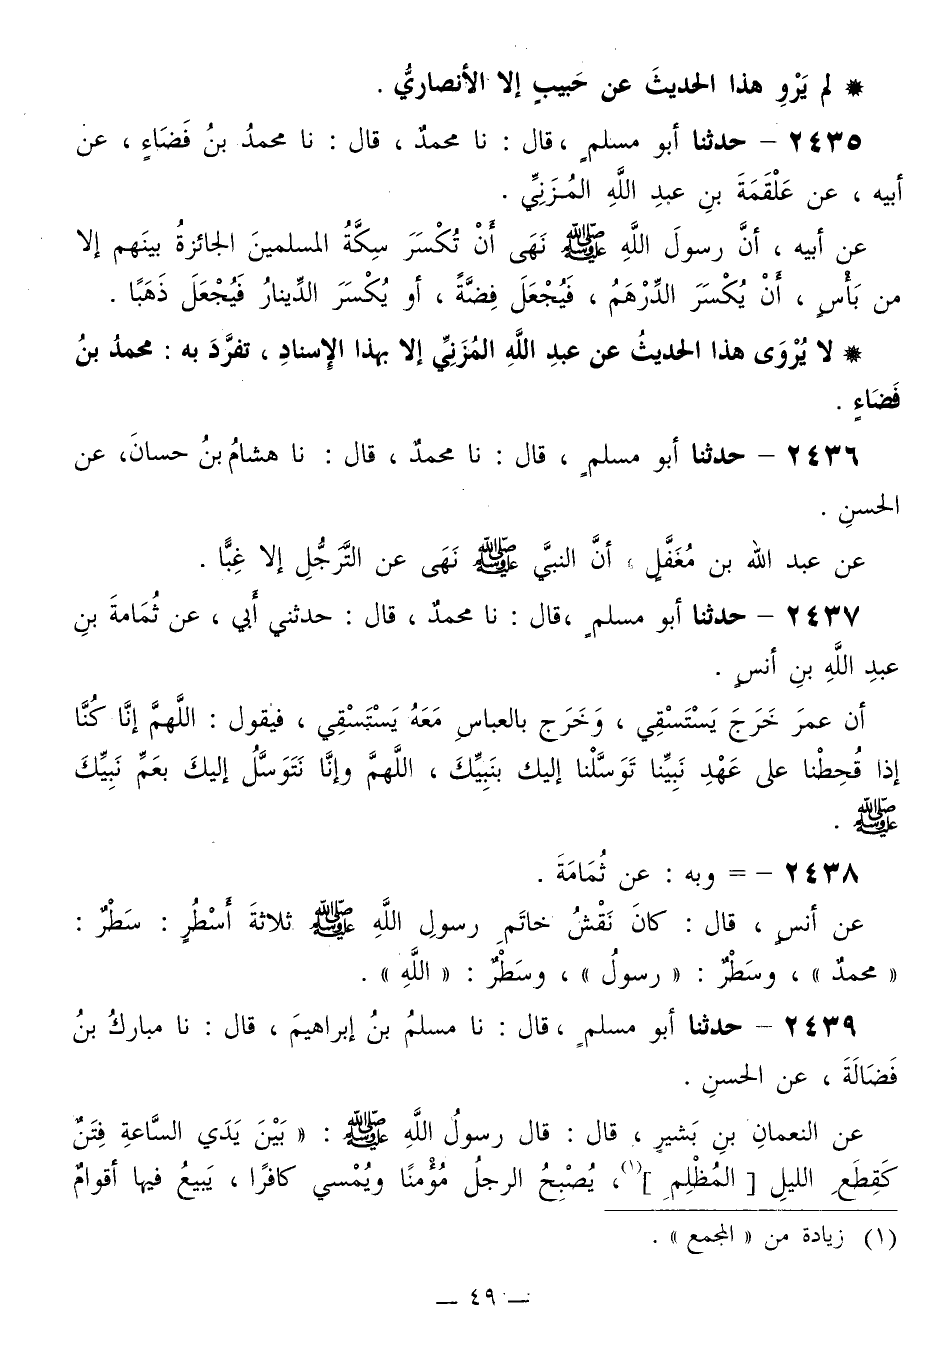 * لم يَرْوِ هذا الحديثَ عن حَبيبٍ إلا الأنصاريُّ .
٢٤٣٥ – حدثنا أبو مسلمٍ ، قال : نا محمدٌ ، قال : نا محمدُ بنُ فَضَاءٍ ، عن
أبيه ، عن عَلْقَمَةَ بنِ عبدِ اللَّهِ المُزَنِيِّ .
عن أبيه ، أنَّ رسولَ اللَّهِ ﷺ نَهَى أَنْ تُكْسَرَ سِكَّةُ المسلمينَ الجائزةُ بينَهم إلا
من بَأْسٍ ، أَنْ يُكْسَرَ الدِّرْهَمُ ، فَيُجْعَلَ فِضَّةً ، أو يُكْسَرَ الدِّينارُ فَيُجْعَلَ ذَهَبًا .
* لا يُرْوَى هذا الحديثُ عن عبدِ اللَّهِ المُزَنِيِّ إلا بهذا الإِسنادِ ، تفرَّدَ به : محمدُ بنُ
فَضَاءٍ .
٢٤٣٦ – حدثنا أبو مسلمٍ ، قال : نا محمدٌ ، قال : نا هشامُ بنُ حسانَ، عن
الحسنِ .
عن عبد الله بن مُغَفَّلٍ ، أنَّ النبيَّ ﷺ نَهَى عن التَّرَجُّلِ إلا غِبًّا .
٢٤٣٧ – حدثنا أبو مسلمٍ ،قال : نا محمدٌ ، قال : حدثني أَبي ، عن ثُمَامةَ بنِ
عبدِ اللَّهِ بنِ أنسٍ .
أن عمرَ خَرَجَ يَسْتَسْقِي ، وَخَرَج بالعباسِ مَعَهُ يَسْتَسْقِي ، فيقول : اللَّهمَّ إنَّا كُنَّا
إذا قُحِطْنا على عَهْدِ نَبِيِّنا تَوَسَّلْنا إليك بنَبِيِّكَ ، اللَّهمَّ وإنَّا نَتَوَسَّلُ إليكَ بعَمِّ نَبِيِّكَ
ﷺ .
٢٤٣٨ – = وبه : عن ثُمَامَةَ .
عن أنسٍ ، قال : كانَ نَقْشُ خاتَمِ رسولِ اللَّهِ ﷺ ثلاثةَ أَسْطُرٍ : سَطْرٌ :
« محمدٌ » ، وسَطْرٌ : « رسولُ » ، وسَطْرٌ : « اللَّهِ » .
٢٤٣٩ – حدثنا أبو مسلمٍ ، قال : نا مسلمُ بنُ إبراهيمَ ، قال : نا مباركُ بنُ
فَضَالَةَ ، عن الحسنِ .
عن النعمانِ بنِ بَشيرٍ ، قال : قال رسولُ اللَّهِ ﷺ : « بَيْنَ يَدَي السَّاعةِ فِتَنٌ
كَقِطَعِ الليلِ [ المُظْلِمِ ](١)، يُصْبِحُ الرجلُ مُؤْمنًا ويُمْسي كافرًا ، يَبيعُ فيها أقوامٌ
(١) زيادة من « المجمع » .
— ٤٩ —